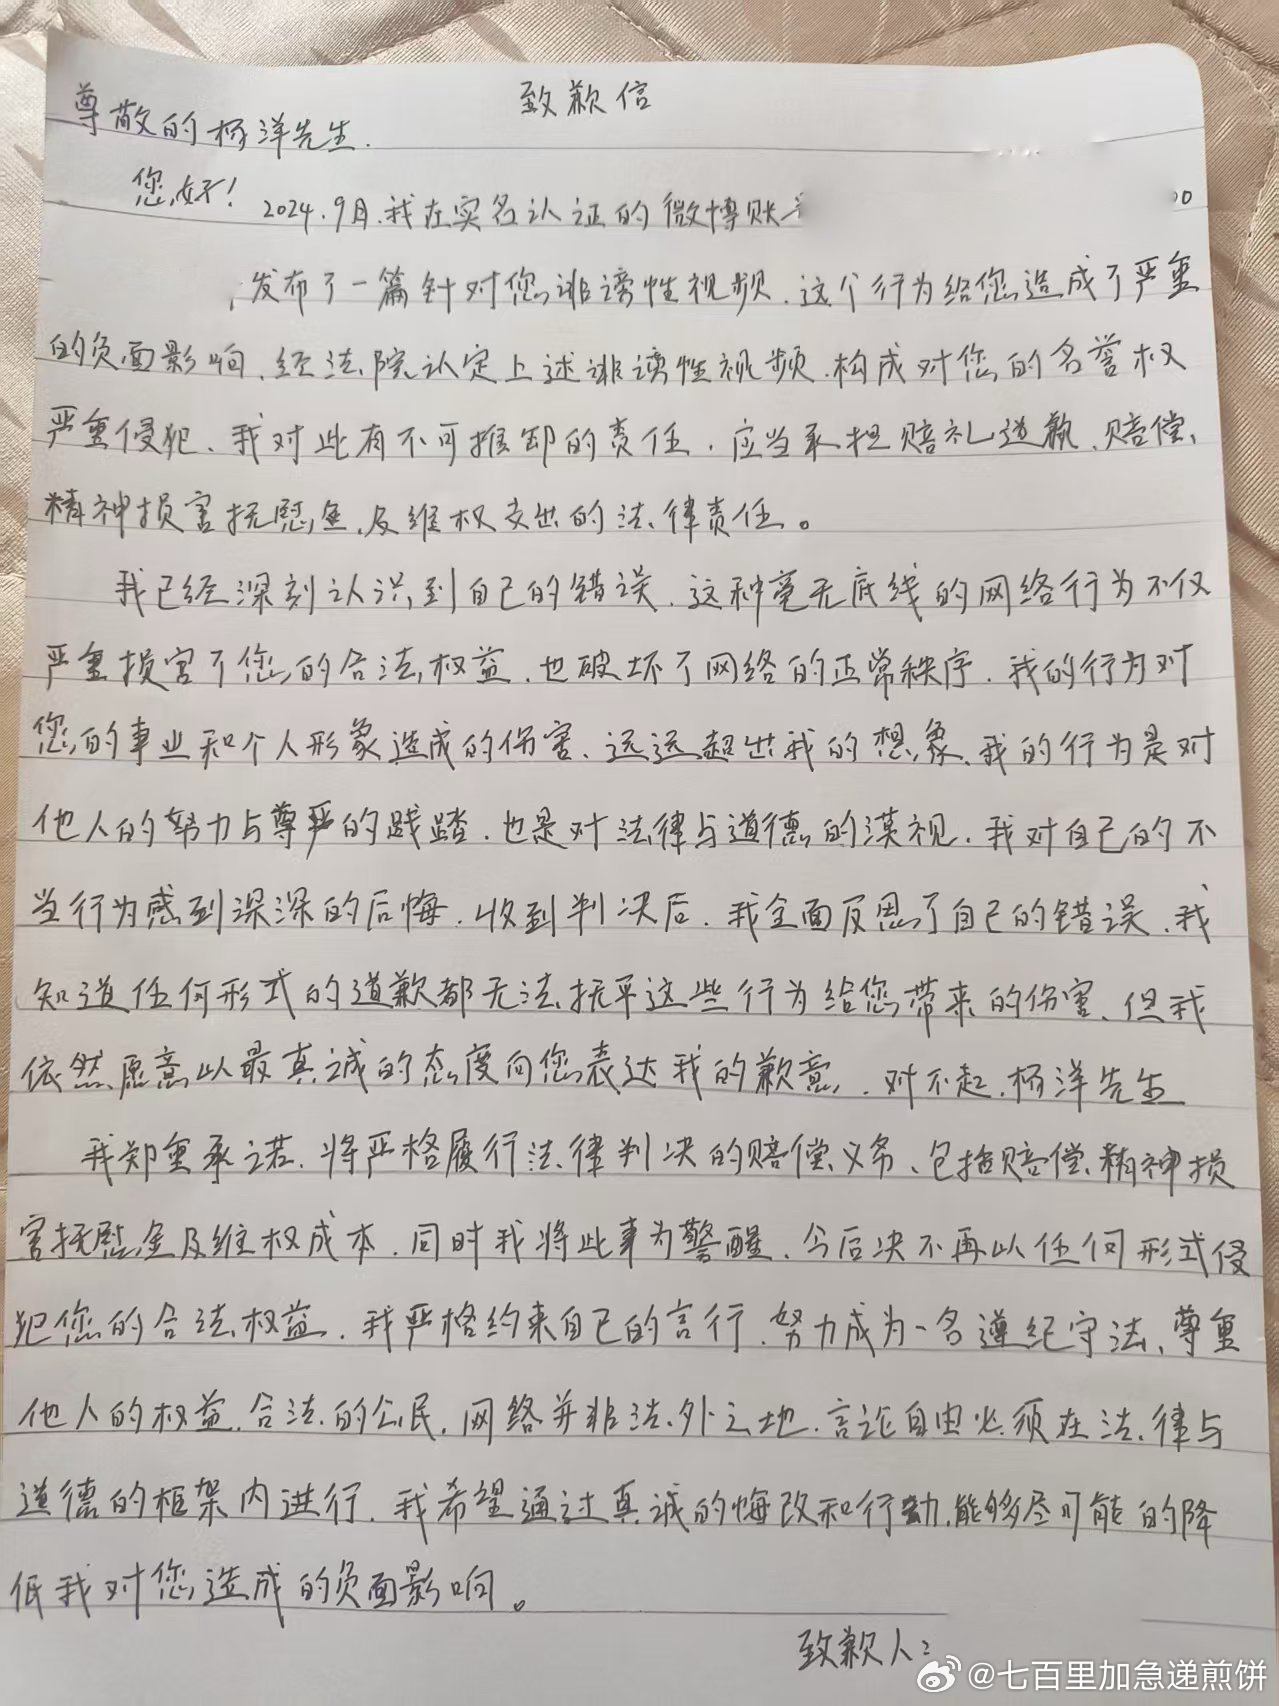 致歉信
尊敬的杨洋先生.
您好! 2024.9月.我在实名认证的微博账
00
,发布了一篇针对您诽谤性视频.这个行为给您造成了严重
的负面影响.经法院认定上述诽谤性视频.构成对您的名誉权
严重侵犯.我对此有不可推卸的责任.应当承担赔礼道歉、赔偿、
精神损害抚慰金,及维权支出的法律责任。
我已经深刻认识到自己的错误.这种毫无底线的网络行为不仅
严重损害了您的合法权益.也破坏了网络的正常秩序.我的行为对
您的事业和个人形象造成的伤害、远远超出我的想象.我的行为是对
他人的努力与尊严的践踏.也是对法律与道德的漠视.我对自己的不
当行为感到深深的后悔.收到判决后.我全面反思了自己的错误.我
知道任何形式的道歉都无法抚平这些行为给您带来的伤害、但我
依然愿意以最真诚的态度向您表达我的歉意,.对不起.杨洋先生
我郑重承诺.将严格履行法律判决的赔偿义务、包括赔偿、精神损
害抚慰金及维权成本.同时我将此事为警醒.今后决不再以任何形式侵
犯您的合法权益.我严格约束自己的言行.努力成为一名遵纪守法、尊重
他人的权益.合法的公民.网络并非法外之地.言论自由必须在法律与
道德的框架内进行.我希望通过真诚的悔改和行动.能够尽可能的降
低我对您造成的负面影响。
致歉人:
@七百里加急递煎饼